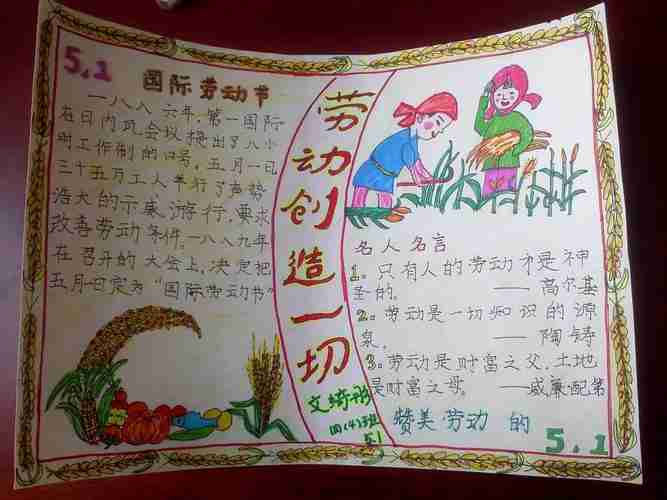 5.1
国际劳动节
一八八六年,第一国际
在日内瓦会议提出了八小
时工作制的口号,五月一日
三十五万工人举行了声势
浩大的示威游行,要求
改善劳动条件。一八八九年
在召开的大会上,决定把
五月一日定为“国际劳动节”
劳动创造一切
文绮彤
四(4)班
51
名人名言
1。只有人的劳动才是神
圣的。 ——高尔基
2。劳动是一切知识的源
泉。 ——陶铸
3。劳动是财富之父,土地
是财富之母。 ——威廉·配第
赞美劳动的
5.1